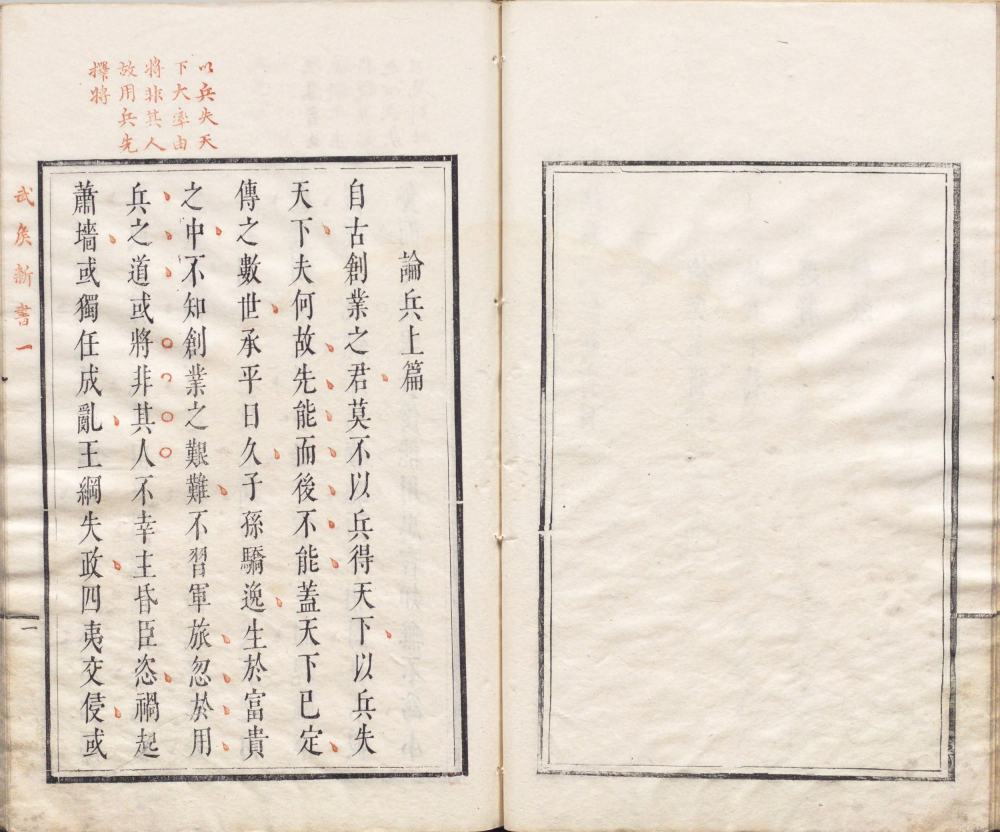 論兵上篇
自古創業之君莫不以兵得天下以兵失
天下夫何故先能而後不能蓋天下已定
傳之數世承平日久子孫驕逸生於富貴
之中不知創業之艱難不習軍旅忽於用
兵之道或將非其人不幸主昏臣恣禍起
蕭墻或獨任成亂王綱失政四夷交侵或
以兵失天
下大率由
將非其人
故用兵先
擇將
武矦新書一
一